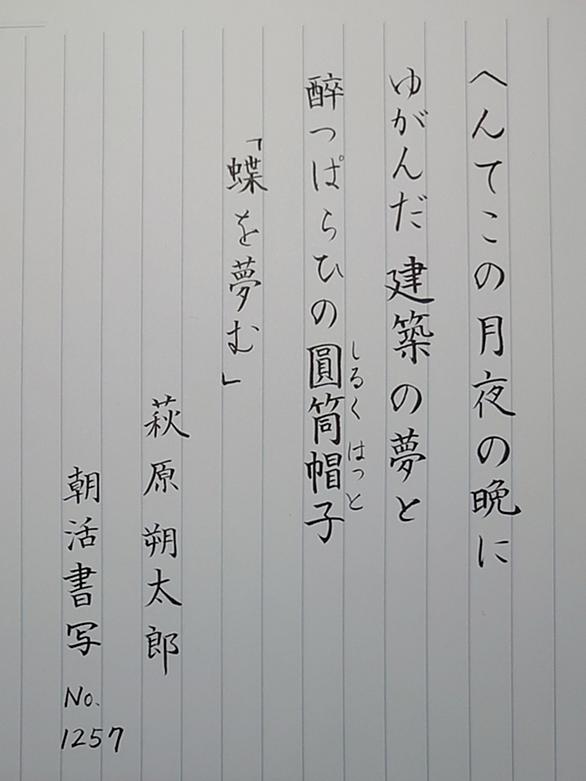 へんてこの月夜の晩に
ゆがんだ建築の夢と
酔っぱらひの圓筒帽子
しるくはっと
「蝶を夢む」
萩原朔太郎
朝活書写
No.
1257